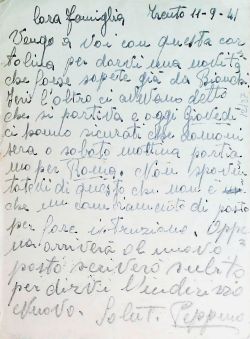 Cara famiglia Trento 11-9-41
Vengo a voi con questa car
tolina per darvi una novità
che forse sapete già da
Ieri l'altro ci avevano detto
che si partiva e oggi giovedì
ci hanno sicurati che domani
sera o sabato mattina partia
mo per Roma. Non spave
tatevi di questo che non è
che un cambiamento di posto
per fare istruzione. Appe
na arriverò al nuovo
posto scriverò subito
per dirvi l'indirizzo
nuovo. Salut. Peppino